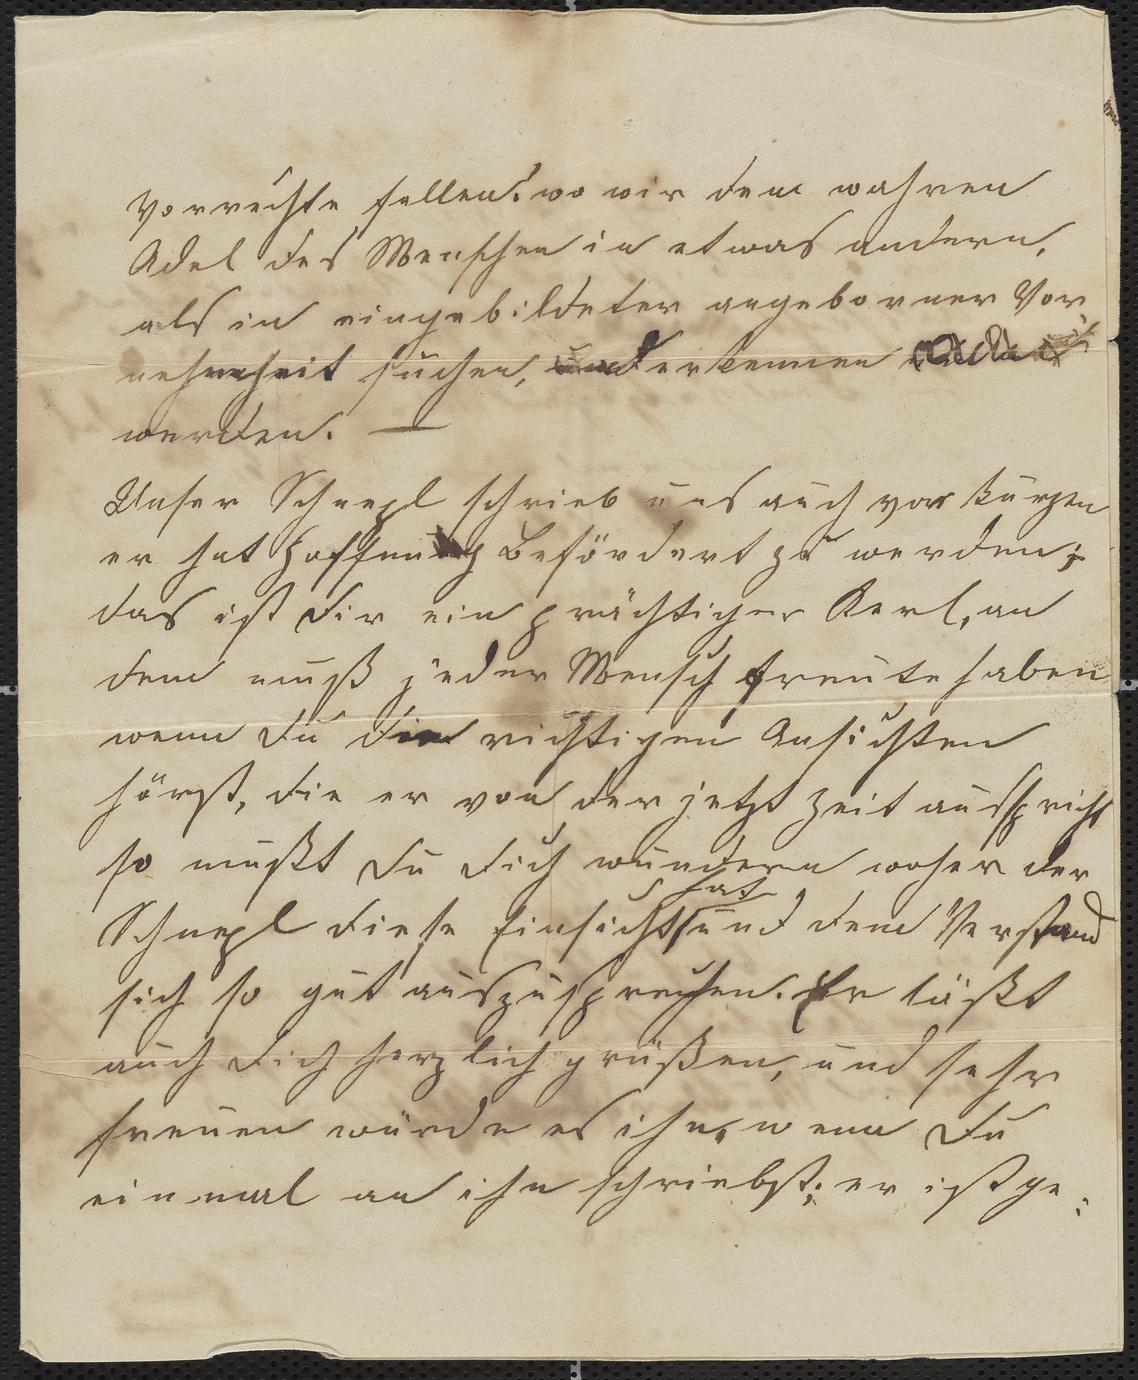 Vorrechte fallen? wo wir den wahren
Adel des Menschen in etwas andern,
als in eingebildeter angeborner Vor
nehmheit suchen, und erkennen
werden. —
Unser Schnepl schrieb uns auch vor kurzen
er hat Hoffnung befördert zu werden;
das ist dir ein prächtiger Kerl, an
dem muß jeder Mensch Freute haben
wenn du die richtigen Ansichten
hörst, die er von der jetzt Zeit ausspricht
so mußt du dich wundern woher der
Schnepl diese Einsicht hat und den Verstand
sich so gut auszusprechen. Er läßt
auch dich herzlich grüßen, und sehr
freuen würde es ihn, wenn du
einmal an ihn schriebst; er ist ge: